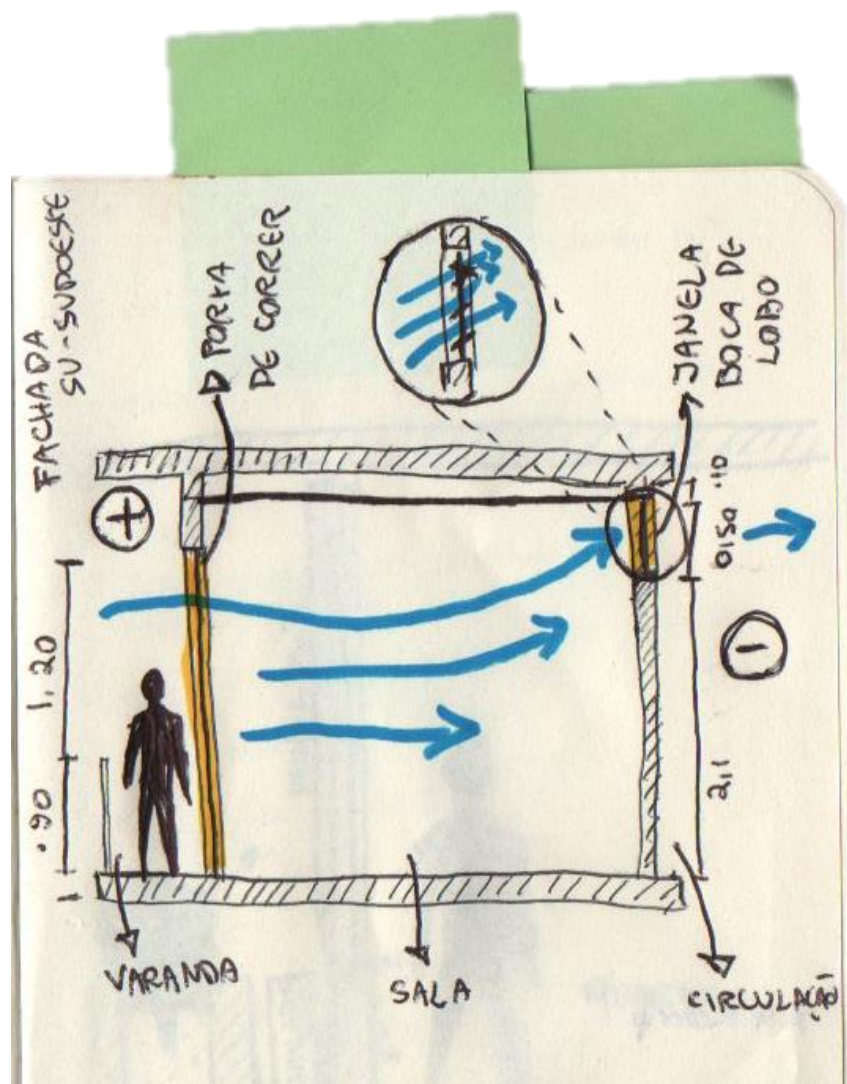 FACHADA
SU-SUDOESTE
PORTA
DE CORRER
JANELA
BOCA DE
LOBO
+
.10
0,50
1,20
-
.90
2,1
VARANDA
SALA
CIRCULAÇÃO